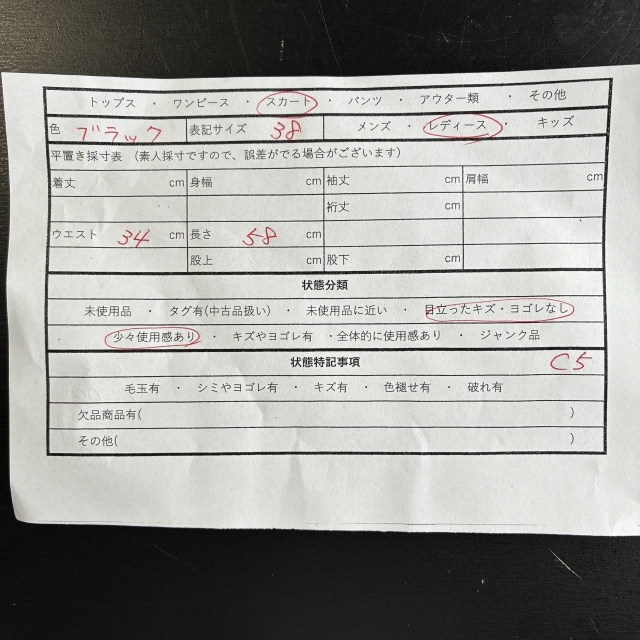 トップス ・ ワンピース ・ スカート ・ パンツ ・ アウター類 ・ その他
色 ブラック 表記サイズ 38 メンズ ・ レディース ・ キッズ
平置き採寸表 （素人採寸ですので、誤差がでる場合がございます）
着丈 cm 身幅 cm 袖丈 cm 肩幅 cm
裄丈 cm
ウエスト 34 cm 長さ 58 cm
股上 cm 股下 cm
状態分類
未使用品 ・ タグ有(中古品扱い) ・ 未使用品に近い ・ 目立ったキズ・ヨゴレなし
・ 少々使用感あり ・ キズやヨゴレ有 ・全体的に使用感あり ・ ジャンク品
状態特記事項 C5
毛玉有 ・ シミやヨゴレ有 ・ キズ有 ・ 色褪せ有 ・ 破れ有
欠品商品有( )
その他( )